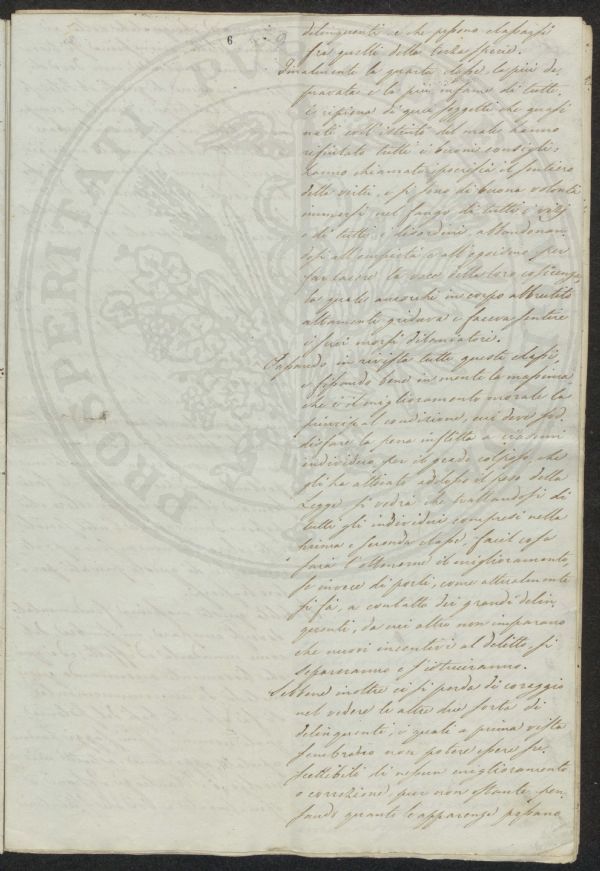 6
delinquenti e che possono classarsi
fra quelli della terza specie.
Finalmente la quarta classe la più de,
pravata e la più infame di tutte
è ripiena di quei soggetti che quasi
nati coll'istinto del male hanno
rifiutato tutti i buoni consigli,
hanno chiamato ipocrisia il sentiero
della virtù, e si sono di buona volontà
immersi nel fango di tutti i vizj
e di tutti i disordini, abbandonan,
dosi all'empietà e all'egoismo per
far tacere la voce della loro coscienza,
la quale ancorchè in corpo abbrutito
altamente gridava e faceva sentire
i suoi morsi dilaniatori.
Passando in rivista tutte queste classi,
e fissando bene in mente la massima
che è il miglioramento morale la
principal condizione, cui deve sod,
disfare la pena inflitta a ciascun
individuo per il grado colposo che
gli ha attirato addosso il peso della
Legge si vedrà che trattandosi di
tutti gli individui compresi nella
prima e seconda classe, facil cosa
sarà l'ottenerne il miglioramento,
se invece di porli, come attualmente
si fà, a contatto dei grandi delin,
quenti, da cui altro non imparano
che nuovi incentivi al delitto, si
separeranno e s'istruiranno.
Sebbene inoltre ci si perda di coraggio
nel vedere le altre due sorta di
delinquenti, i quali a prima vista
sembrano non potere essere su,
scettibili di nessun miglioramento
o correzione, pur non ostante pen,
sando quanto le apparenze possano
PROSPERITATI PUBL